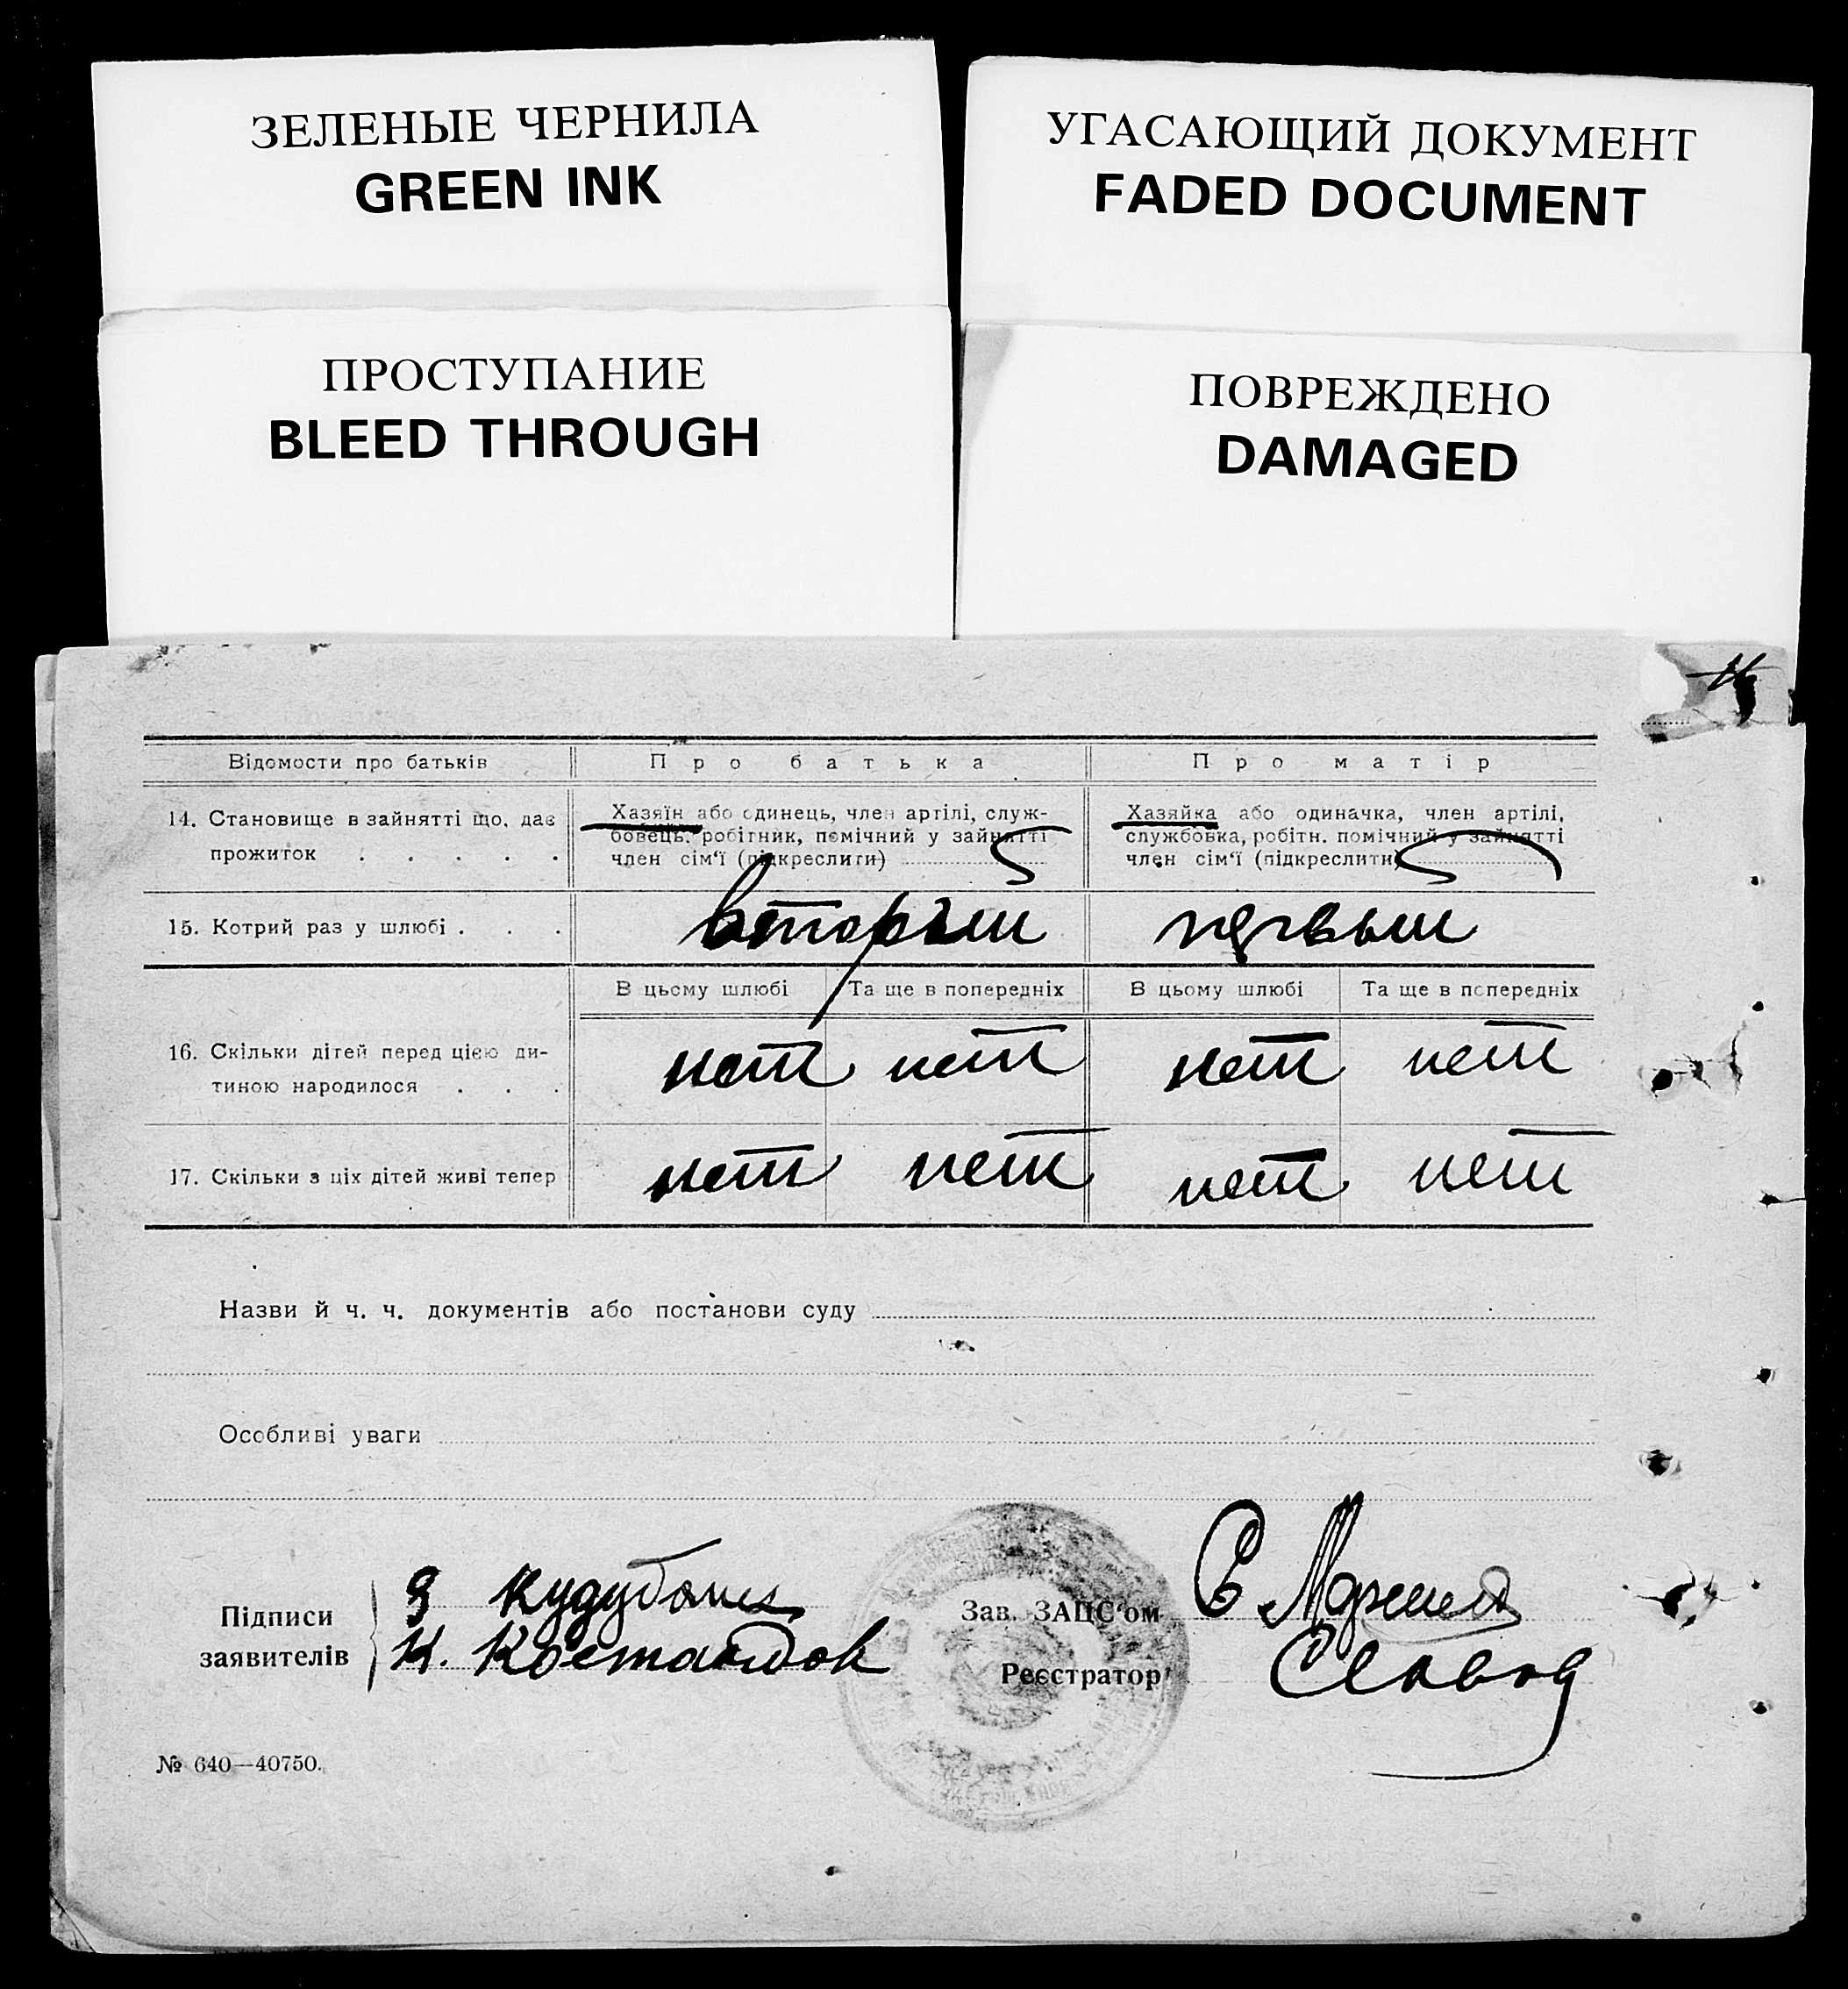 ЗЕЛЕНЫЕ ЧЕРНИЛА
GREEN INK
УГАСАЮЩИЙ ДОКУМЕНТ
FADED DOCUMENT
ПРОСТУПАНИЕ
BLEED THROUGH
ПОВРЕЖДЕНО
DAMAGED
Відомости про батьків Про батька Про матір
14. Становище в зайнятті що, дає
прожиток . . . . .
Хазяїн або одинець, член артілі, служ-
бовець, робітник, помічний у зайнятті
член сім'ї (підкреслити)
Хазяйка або одиначка, член артілі,
службовка, робітн. помічний у зайнятті
член сім'ї (підкреслити)
15. Котрий раз у шлюбі . . . вторый первый
В цьому шлюбі Та ще в попередніх В цьому шлюбі Та ще в попередніх
16. Скільки дітей перед цією ди-
тиною народилося . . . нет нет нет нет
17. Скільки з ціх дітей живі тепер нет нет нет нет
Назви й ч. ч. документів або постанови суду
Особливі уваги
Підписи
заявителів
К.
Зав. ЗАПС'ом
Реєстратор
№ 640—40750.